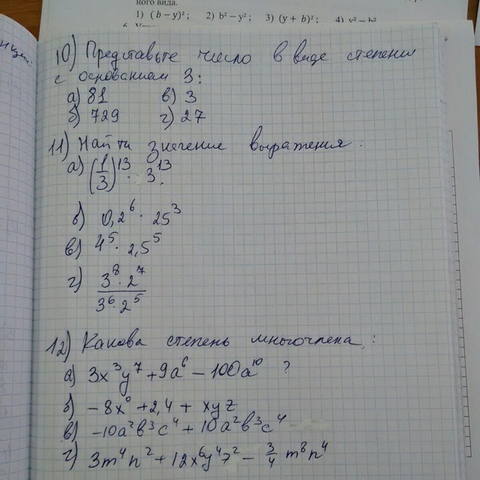 ного вида.
1) (b − y)²; 2) b² − y²; 3) (y + b)²; 4) y² − b²
10) Представьте число в виде степени
с основанием 3:
а) 81 в) 3
б) 729 г) 27
11) Найти значение выражения.
а) (1/3)¹³ · 3¹³
б) 0,2⁶ · 25³
в) 4⁵ · 2,5⁵
г) 3⁸ · 2⁷ / 3⁶ · 2⁵
12) Какова степень многочлена:
а) 3x³y⁷ + 9a⁶ − 100a¹⁰ ?
б) −8x⁰ + 2,4 + xyz
в) −10a²b³c⁴ + 10a²b³c⁴
г) 3m⁴n² + 12x⁶y⁴z² − 3/4 m⁸n⁴